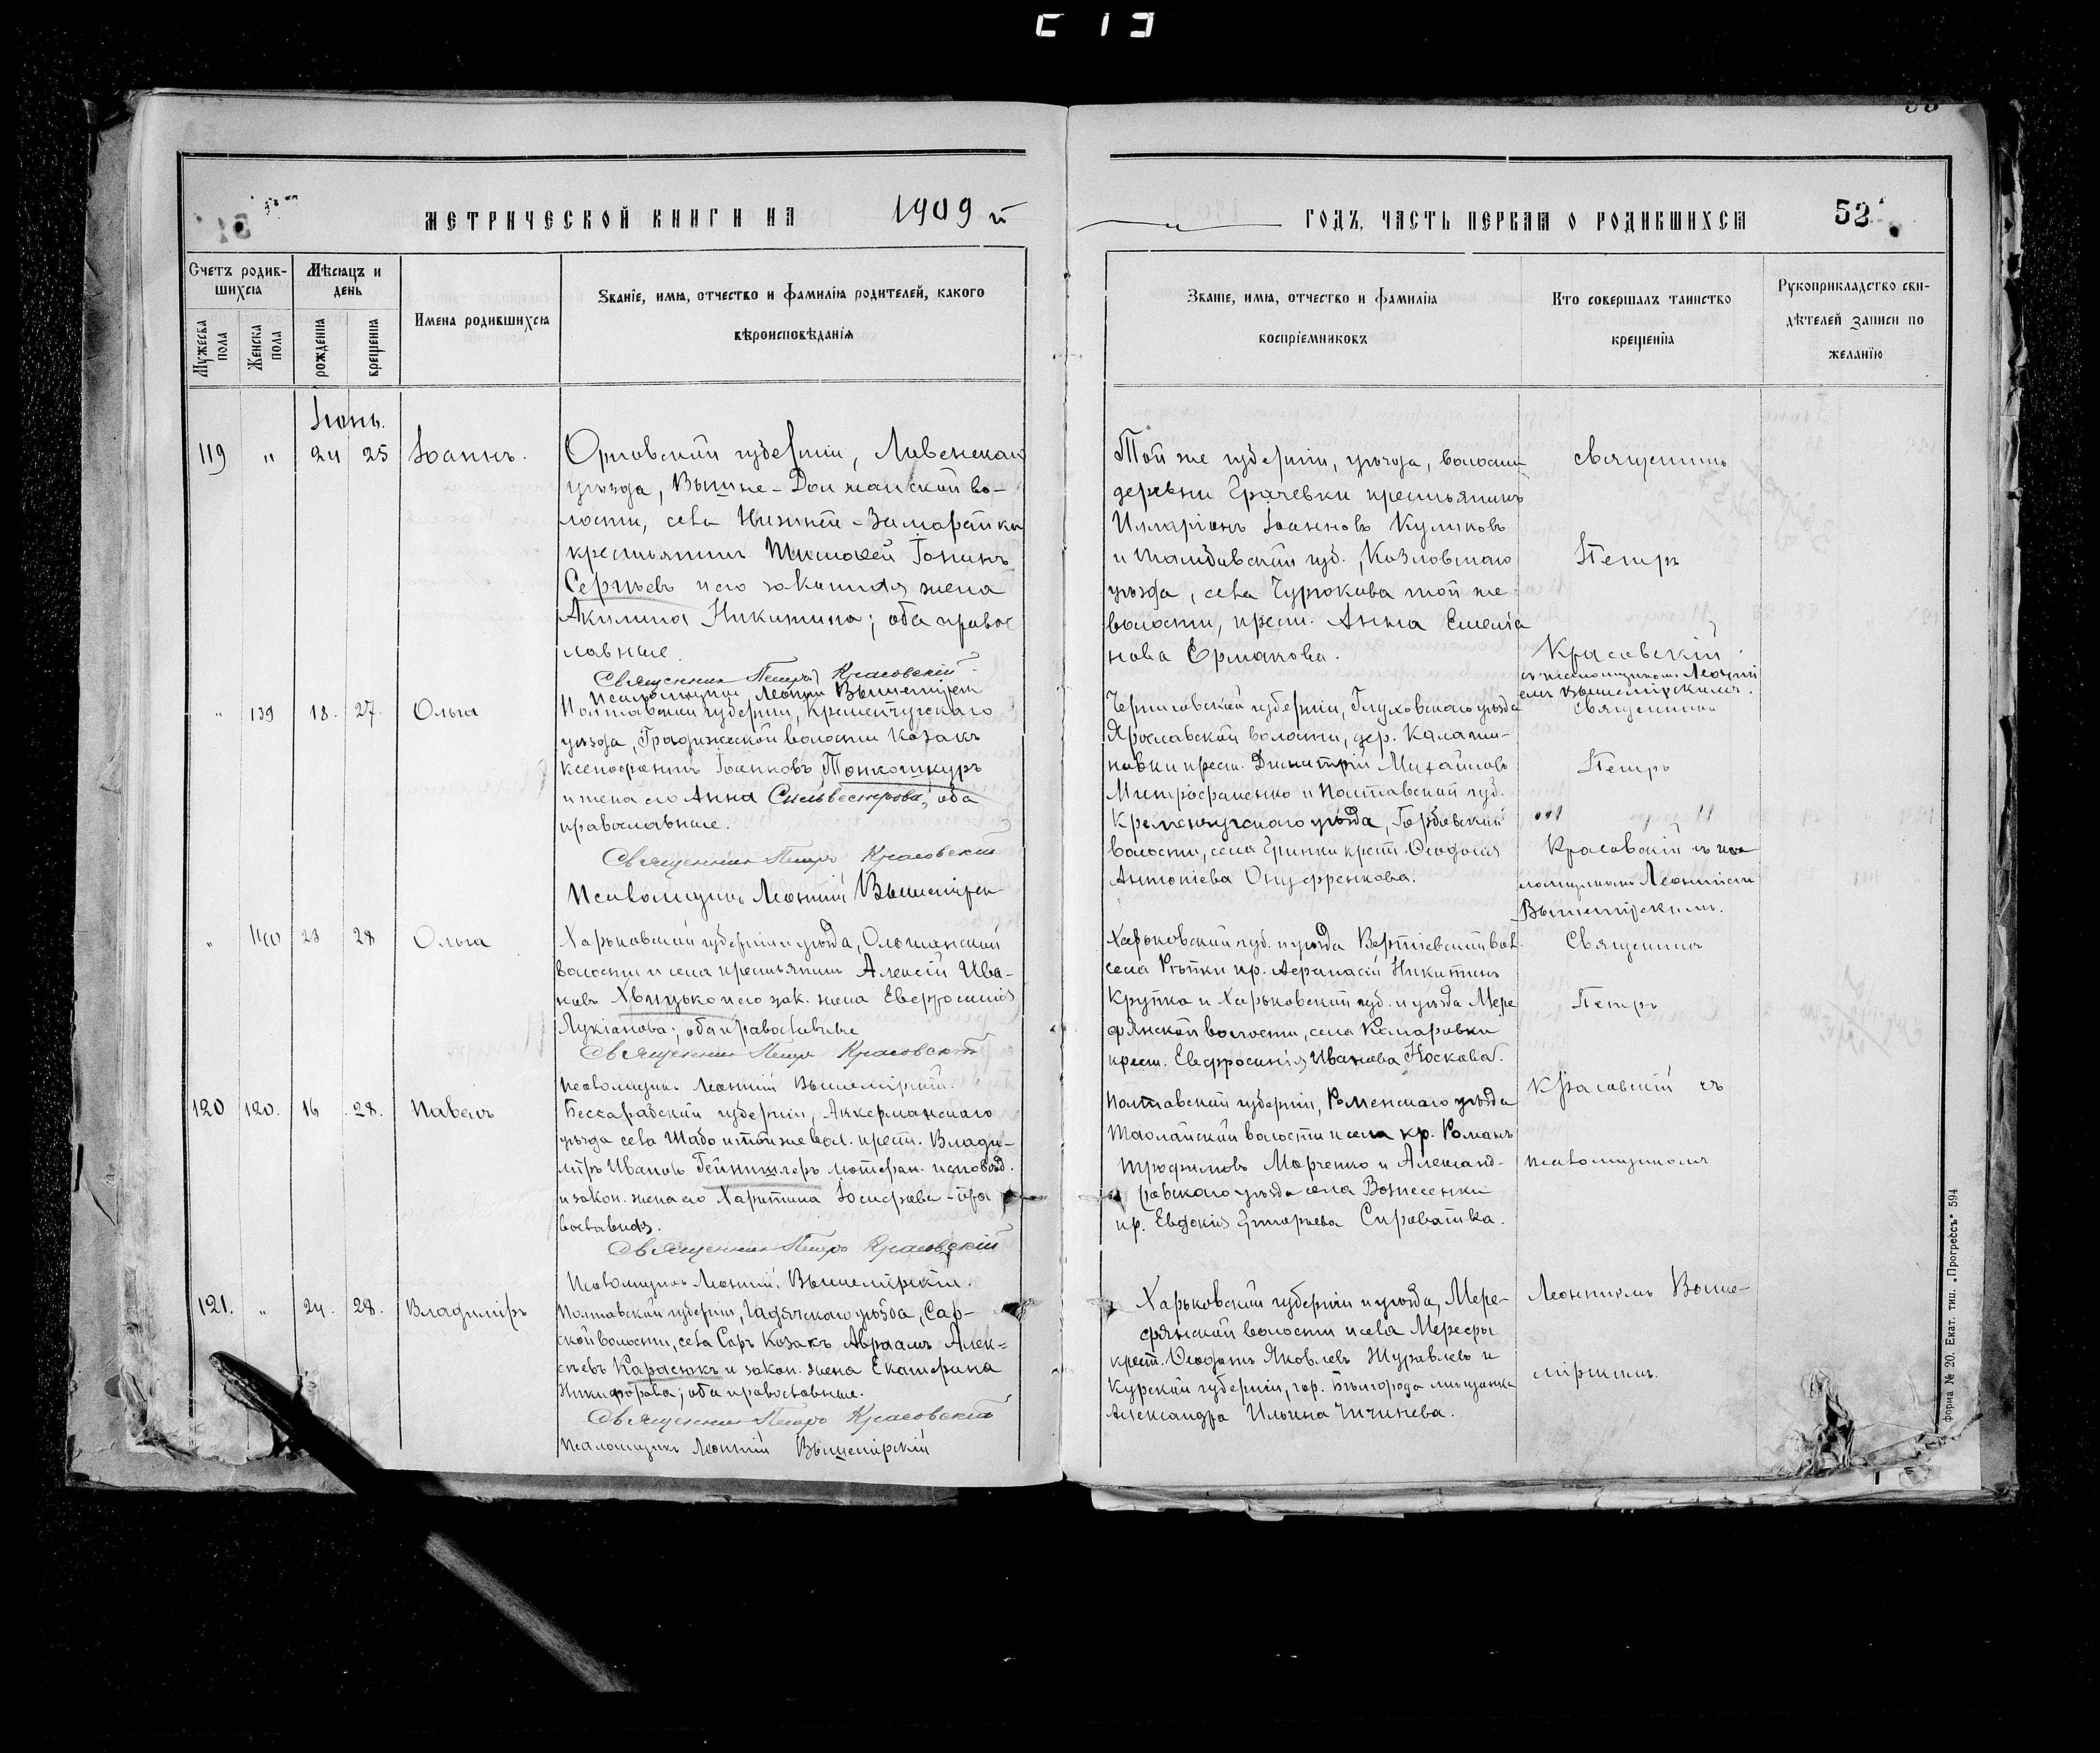 МЕТРИЧЕСКОЙ КНИГИ НА 1909 й
Счетъ родившихся
Мужеска пола
Женска пола
Мѣсяцъ и день
рожденія
крещенія
Имена родившихся
Званіе, имя, отчество и фамилія родителей, какого
вѣроисповѣданія
Іюнь.
119 " 24 25 Іоаннъ.
Орловской губерніи, Ливенскаго
уѣзда, Вышне-Должанской во-
лости, села
крестьянинъ Тимофей Іоанновъ
Сергѣевъ и его законная жена
Акилина Никитина; оба правос
лавные.
Священникъ Петръ Красовскій
Псаломщикъ Леонтій Вышемірскій
" 139 18. 27. Ольга
Полтавской губерніи, Кременчугскаго
уѣзда, Градижской волости козакъ
Ксенофонтъ Іоанновъ Тонкошкуръ
и жена его Анна Сильвестрова; оба
православные.
Священникъ Петръ Красовскій
Псаломщикъ Леонтій Вышемірскій
" 140 23 28 Ольга
Харьковской губерніи и уѣзда, Ольшанской
волости и села крестьянинъ Алексій Ива-
новъ Хвицько и его зак. жена Евфросинія
Лукіанова; оба православные
Священникъ Петръ Красовскій
Псаломщикъ Леонтій Вышемірскій.
120 120. 16 28. Павелъ
Бессарабской губерніи, Аккерманскаго
уѣзда села Шабо и той же вол. крест. Влади-
міръ Ивановъ лютеран. исповѣд.
и закон. жена его Харитина Іосифова - пра
вославная.
Священникъ Петръ Красовскій
Псаломщикъ Леонтій Вышемірскій.
121. " 24. 28. Владиміръ
Полтавской губерніи, Гадячскаго уѣзда, Сар-
ской волости, села Саръ козакъ Авраамъ Алек-
сѣевъ Карасюкъ и закон. жена Екатерина
Никифорова; оба православные.
Священникъ Петръ Красовскій
Псаломщикъ Леонтій Вышемірскій
ГОДЪ, ЧАСТЬ ПЕРВАЯ О РОДИВШИХСЯ 52
Званіе, имя, отчество и фамилія
воспріемниковъ
Кто совершалъ таинство
крещенія
Рукоприкладство сви-
дѣтелей записи по
желанію
Той же губерніи, уѣзда, волости
деревни Грачевки крестьянинъ
Илларіонъ Іоанновъ Куликовъ
и Тамбовской губ., Козловскаго
уѣзда, села Чурюкова той же
волости, крест. Анна Емелія
нова Ермакова.
Священникъ
Петръ
Красовскій
съ псаломщикомъ Леонті
емъ Вышемірскимъ.
Черниговской губерніи, Глуховскаго уѣзда
Ярославской волости, дер. Калаши-
новки крест. Димитрій Михайловъ
Митрофаненко и Полтавской губ.
Кременчугскаго уѣзда, Горбовской
волости, села Гриньки крест. Ѳеодосія
Антоніева Онуфренкова.
Священникъ
Петръ
Красовскій съ пса
ломщикомъ Леонтіемъ
Вышемірскимъ.
Харьковской губ. и уѣзда вол.
села Рѣпки кр. Аѳанасій Никитинъ
Крупка и Харьковской губ. и уѣзда Мере
фянской волости, села Комаровки
крест. Евфросинія Иванова Носкова.
Священникъ
Петръ
Красовскій съ
Полтавской губерніи, Роменскаго уѣзда
волости и села кр. Романъ
Трофимовъ Марченко и Александ-
ровскаго уѣзда села Вознесенки
кр. Евдокія Григорьева Сироватка.
псаломщикомъ
Харьковской губерніи и уѣзда, Мере-
фянской волости и села Мерефы
крест. Ѳеофанъ Яковлевъ Журавлевъ и
Курской губерніи, гор. Бѣлгорода мѣщанка
Александра Ильина Чичинева.
Леонтіемъ Выше-
мірскимъ.
Форма № 20. Екат. тип. „Прогрессъ“ 594